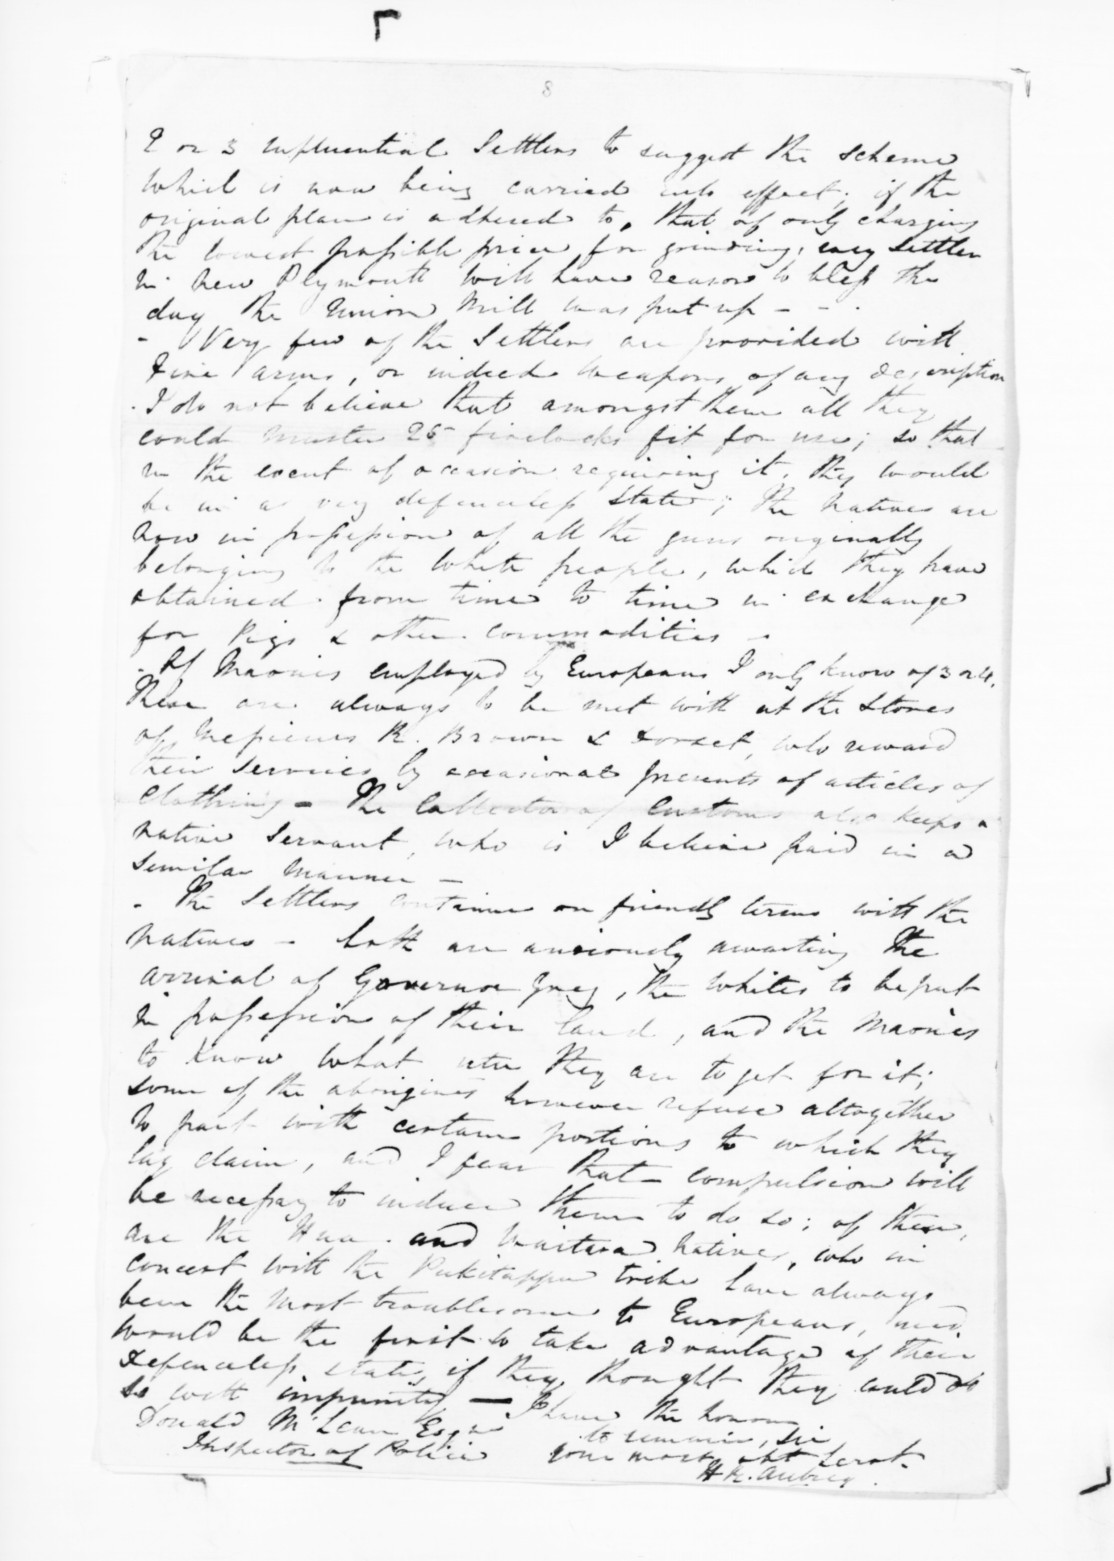 8
2 or 3 influential Settlers to suggest the scheme
which is now being carried into effect; if the
original plan is adhered to, that of only charging
the lowest possible price for grinding, every Settler
in New Plymouth will have reason to bless the
day the Union Mill was put up - - .
- Very few of the Settlers are provided with
Fire arms, or indeed weapons of any description
. I do not believe that amongst them all they
could muster 25 firelocks fit for use; so that
in the event of occasion requiring it, they would
be in a very defenceless State; the natives are
now in possession of all the guns originally
belonging to the White people, which they have
obtained from time to time in exchange
for Pigs & other commodities -
- Of Maories employed by Europeans I only know of 3 or 4.
These are always to be met with at the Stores
of Messieurs R. Brown & Dorset, who reward
their Services by occasional presents of articles of
Clothing - The Collector of Customs also keeps a
native Servant, who is I believe paid in a
Similar manner -
- The Settlers continue on friendly terms with the
natives - both are anxiously awaiting the
arrival of Governor Grey, the Whites to be put
in possession of their land, and the Maories
to know what utu they are to get for it;
some of the aborigines however refuse altogether
to part with certain portions to which they
lay claim, and I fear that compulsion will
be necessary to induce them to do so; of these,
are the Hua and Waitara natives, who in
concert with the Pukitappu tribe have always
been the most troublesome to Europeans, and
would be the first to take advantage of their
defenceless state, if they thought they could do
so with impunity — I have the honour
Donald McLean Esqre to remain, Sir
Inspector of Police your most obt Servt.
H R. Aubrey.